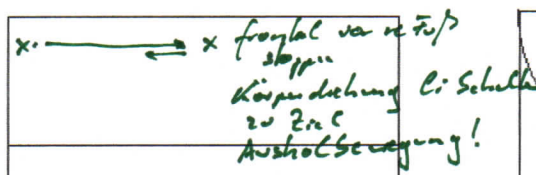 x → x frontal vor re Fuß
stoppen
Körperdrehung li Schulter
zu Ziel
Ausholbewegung!